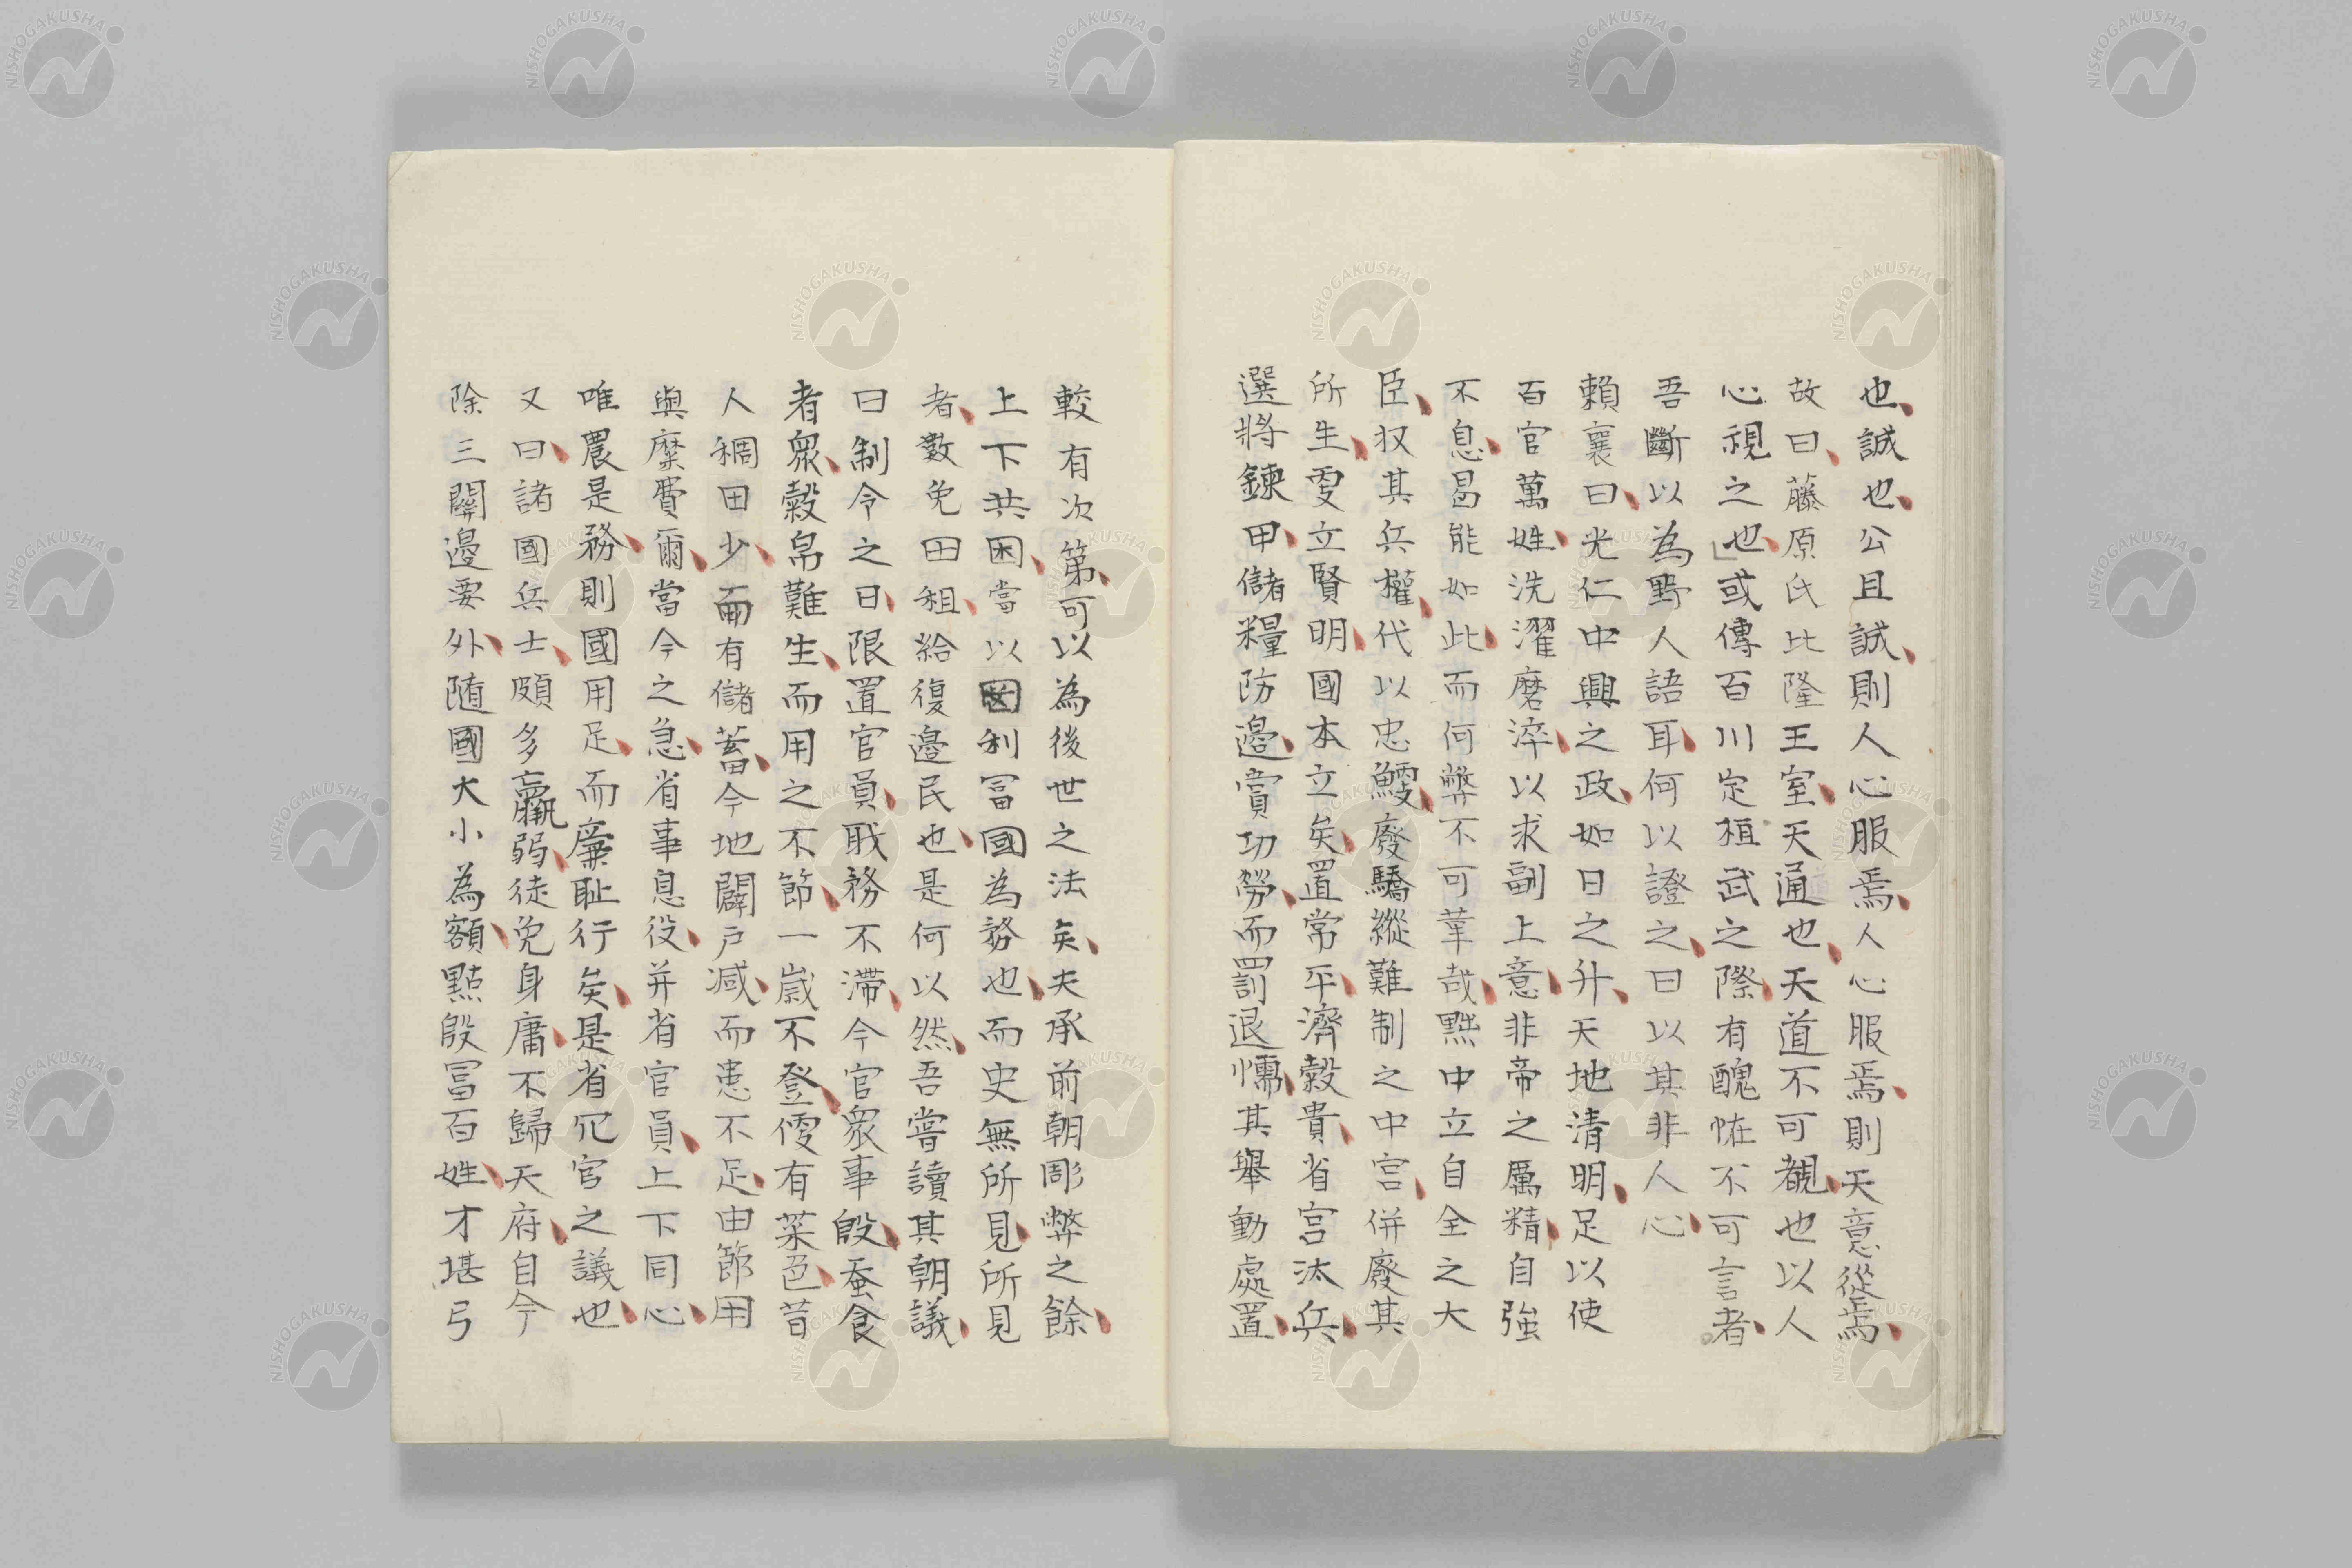 也誠也公且誠則人心服焉人心服焉則天意從焉
故曰藤原氏比隆王室天通也天道不可覩也以人
心視之也」或傳百川定桓武之際有醜怪不可言者
吾斷以為野人語耳何以證之曰以其非人心
賴襄曰光仁中興之政如日之升天地清明足以使
百官萬姓洗濯磨淬以求副上意非帝之厲精自強
不息曷能如此而何弊不可革哉黜中立自全之大
臣収其兵權代以忠鯁廢驕縱難制之中宮併廢其
所生更立賢明國本立矣置常平濟穀貴省宮汰兵
選將鍊甲儲糧防邊賞功勞而罰退懦其舉動處置
較有次第可以為後世之法矣夫承前朝彫弊之餘
上下共困當以利冨國為務也而史無所見所見
者數免田租給復邊民也是何以然吾嘗讀其朝議
曰制令之日限置官員職務不滯今官衆事殷蚕食
者衆穀帛難生而用之不節一歳不登便有菜色昔
人稠田少而有儲蓄今地闢戸減而患不足由節用
與糜費爾當今之急省事息役并省官員上下同心
唯農是務則國用足而廉耻行矣是省冗官之議也
又曰諸國兵士頗多羸弱徒免身庸不歸天府自今
除三關邊要外随國大小為額點殷冨百姓才堪弓
NISHOGAKUSHA